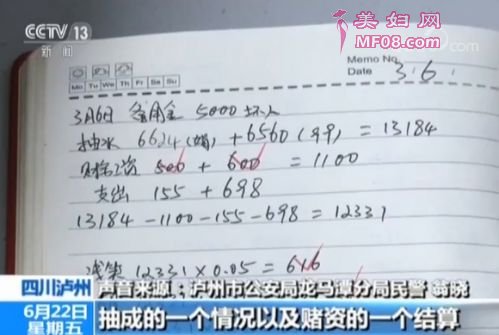 CCTV 13
新闻
美妇网
MF08.com
Memo No.
Mo Tu We Th Fr Sa Su
Date 3.6.
3月6日 备用金 5000
抽水 6624 + 6560 = 13184
工资 500 + 600 = 1100
支出 155 + 698
13184 - 1100 - 155 - 698 = 12331
浅笑 12331 × 0.05 = 616
四川泸州
声音来源：泸州市公安局龙马潭分局民警 翁晓
6月22日
星期五
抽成的一个情况以及赌资的一个结算